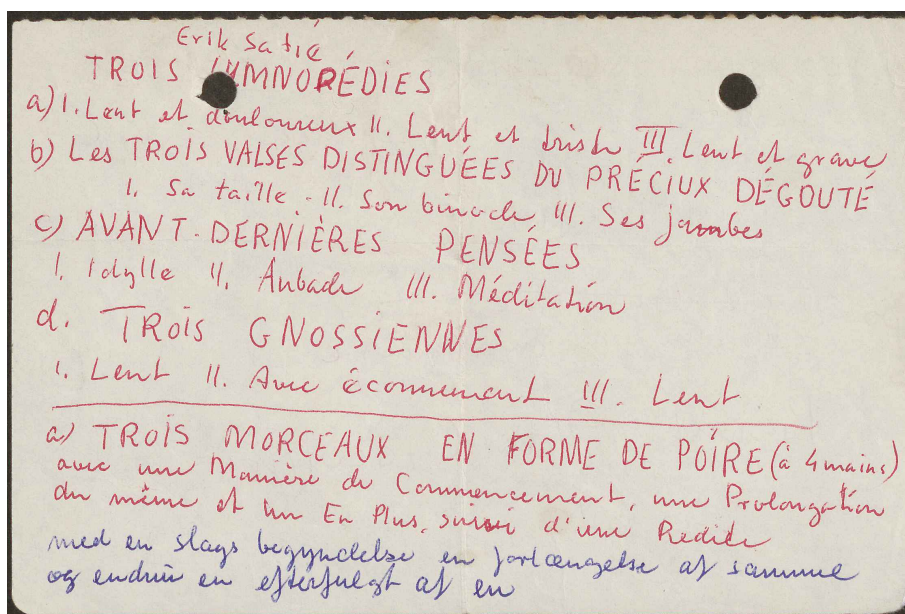 Erik Satie
TROIS GYMNOPÉDIES
a) I. Lent et douloureux II. Lent et triste III. Lent et grave
b) Les TROIS VALSES DISTINGUÉES DU PRÉCIUX DÉGOUTÉ
I. Sa taille - II. Son binocle III. Ses jambes
c) AVANT-DERNIÈRES PENSÉES
I. Idylle II. Aubade III. Méditation
d. TROIS GNOSSIENNES
I. Lent II. Avec éconnement III. Lent
a) TROIS MORCEAUX EN FORME DE POIRE (à 4 mains)
avec une Manière de Commencement, une Prolongation
du même et Un En Plus, suivi d'une Redite
med en slags begyndelse en forlængelse af samme
og endnu en efterfulgt af en